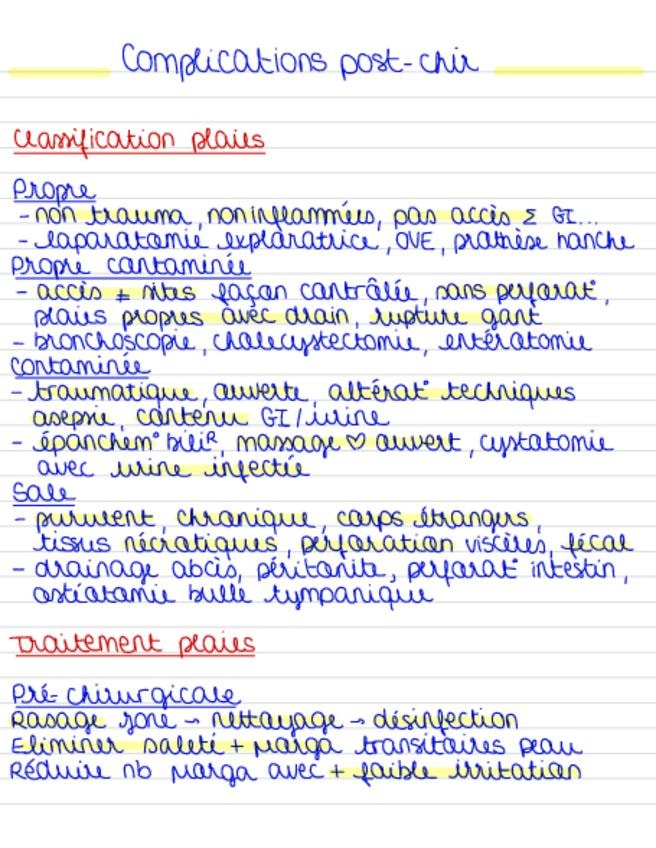 Complications post-chir
Classification plaies
Propre
- non trauma, non inflammées, pas accès Σ GI...
- laparatomie exploratrice, OVE, prothèse hanche
Propre contaminée
- accès ≠ sites façon contrôlée, sans perforat°,
plaies propres avec drain, rupture gant
- bronchoscopie, cholecystectomie, entérotomie
Contaminée
- traumatique, ouverte, altérat° techniques
asepsie, contenu GI/urine
- épanchem° biliR, massage ♡ ouvert, cystotomie
avec urine infectée
Sale
- purulent, chronique, corps étrangers,
tissus nécrotiques, perforation viscères, fécal
- drainage abcès, péritonite, perforat° intestin,
ostéotomie bulle tympanique
Traitement plaies
Pré-chirurgicale
Rasage zone → nettoyage → désinfection
Eliminer saleté + µorga transitoires peau
Réduire nb µorga avec + faible irritation